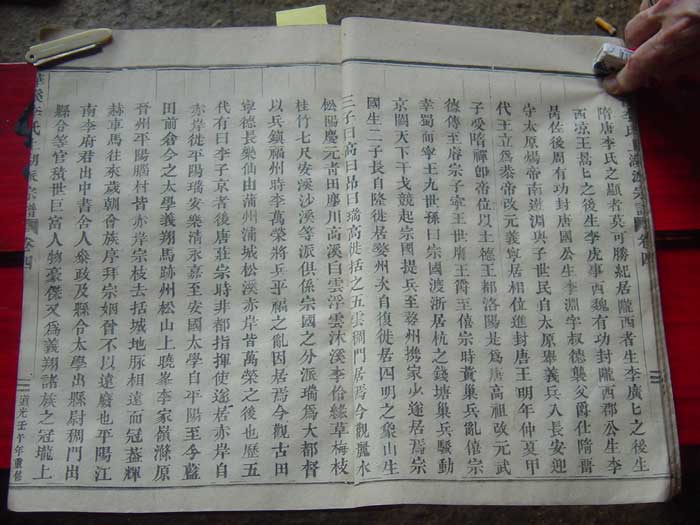 李氏源流宗譜 卷四
隋唐李氏之顯者莫可勝紀居隴西者生李廣匕之後生
西凉王暠匕之後生李虎事西魏有功封隴西郡公生李
昺佐後周有功封唐國公生李淵字叔德襲父爵仕隋晋
守太原煬帝南遊淵與子世民自太原舉義兵入長安迎
代王立爲恭帝改元義寧居相位進封唐王明年仲夏甲
子受隋禪卽帝位以土德王都洛陽是爲唐高祖改元武
德傳王睿宗子寧王世膺王爵至僖宗時黃巢兵亂僖宗
幸蜀而寧王九世孫曰宗國渡浙居杭之錢塘巢兵騷動
京闕天下干戈競起宗國提兵至婺州携家少逵居焉宗
國生二子長自隆徙居婺州次自復徙居四明之象山生
三子曰高曰昂曰瑞高徙括之五雲稠門居焉今觀麗水
松陽慶元青田廖川高溪白雲浮雲沐溪李俗緣草梅枝
桂竹七尺安溪沙溪等派俱係宗國之分派瑞爲大都督
以兵鎮福州時李萬榮將兵平福之亂因居焉今觀古田
寧德長樂仙由蒲州浦城松溪赤岸皆萬榮之後也歷五
代有曰李子京者後唐莊宗時非都指揮使遂居赤岸自
赤岸徙平陽瑞安樂清永嘉至安國太學白平陽至今藍
田前倉今之太學義翔馬跡州松山上曉峯李家嶺滌原
晉州平陽腦村皆赤岸宗枝去括城地脉相連而冠葢輝
赫車馬往來歲朝會族序拜宗姻眷不以遠廢也平陽江
南李府君出中書舍人參政及縣令太學出縣尉稠門出
縣令等官積世巨富人物豪傑又爲義翔諸族之冠壠上
李氏派宗譜 卷四 道光壬午年重修